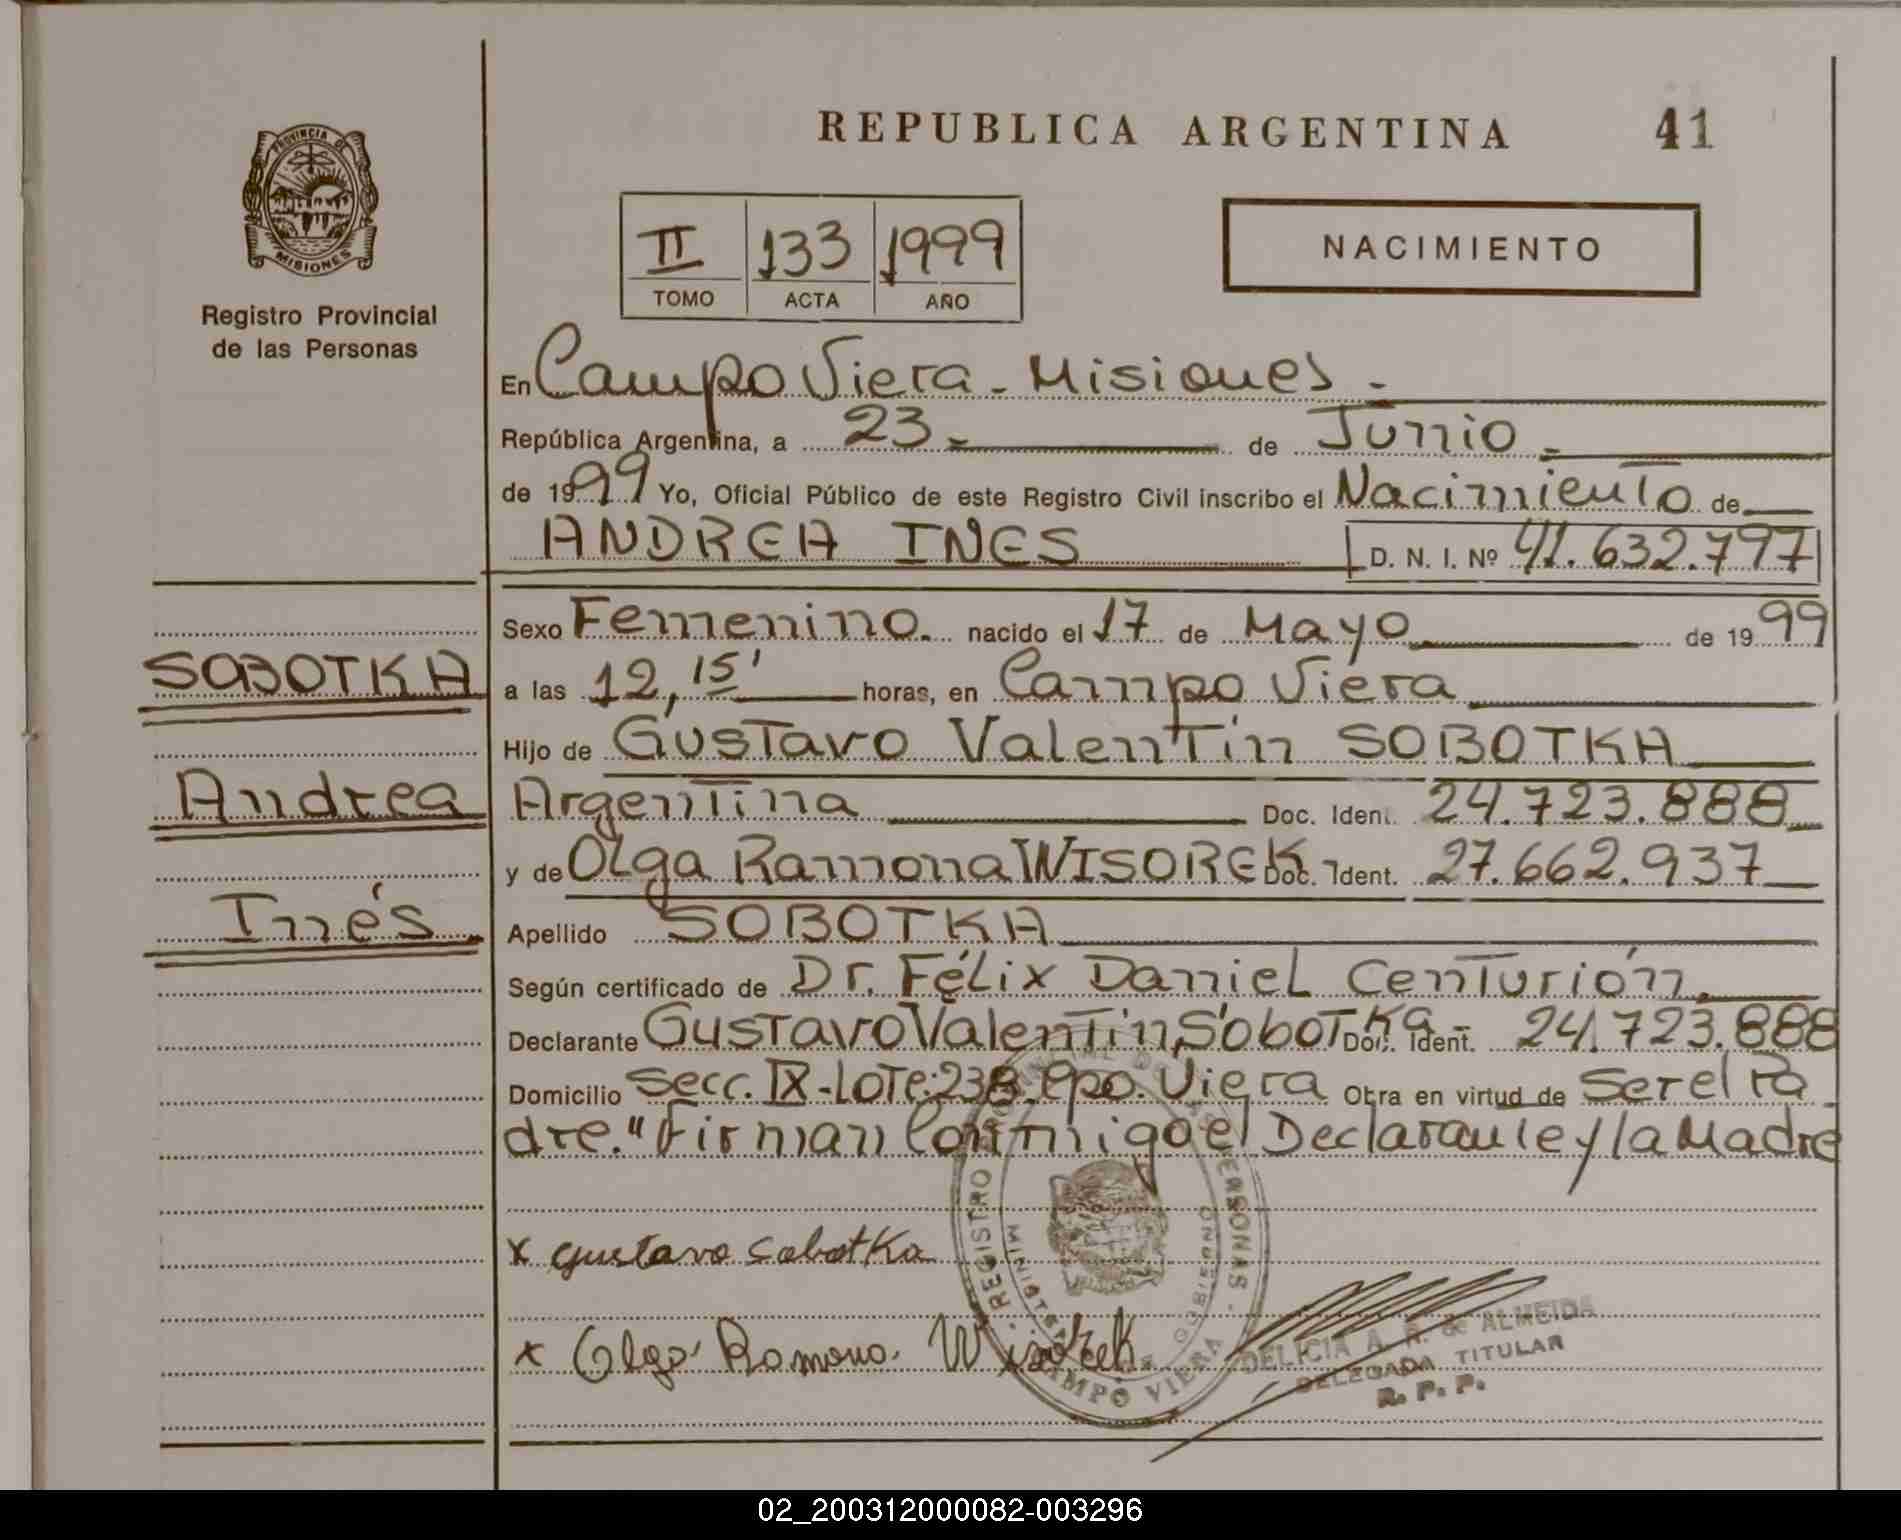 REPUBLICA ARGENTINA
41
PROVINCIA DE
MISIONES
Registro Provincial
de las Personas
II 133 1999
TOMO ACTA AÑO
NACIMIENTO
En Campo Viera - Misiones -
República Argentina, a 23 - de Junio -
de 1999 Yo, Oficial Público de este Registro Civil inscribo el Nacimiento de
ANDREA INES D. N. I. Nº 41.632.797
Sexo Femenino. nacido el 17 de Mayo de 1999
SOBOTKA
a las 12,15' horas, en Campo Viera
Hijo de Gustavo Valentin SOBOTKA
Andrea
Argentina Doc. Ident. 24.723.888
y de Olga Ramona WISOREK Doc. Ident. 27.662.937
Inés
Apellido SOBOTKA
Según certificado de Dr. Félix Daniel Centurión.
Declarante Gustavo Valentin Sobotka - Doc. Ident. 24.723.888
Domicilio Secc. IX - Lote: 238. Cpo. Viera Obra en virtud de Ser el Pa
dre." Firman Conmigo el Declarante y la Madre
x Gustavo Sobotka
x Olga Ramona Wisorek
REGISTRO PROVINCIAL DE LAS PERSONAS
CAMPO VIERA
DELICIA A. R. de ALMEIDA
DELEGADA TITULAR
R. P. P.
02_200312000082-003296